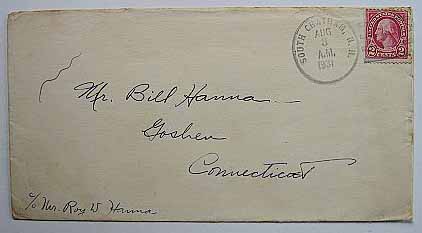 SOUTH CHATHAM, N.H.
AUG
3
A.M.
1931
2 CENTS 2
Mr. Bill Hanna
Goshen
Connecticut
c/o Mr. Roy W Hanna